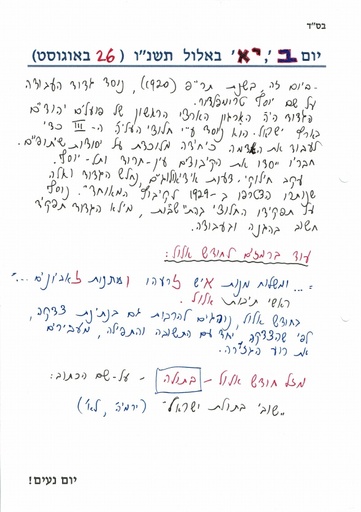 בס"ד
יום ב', יא' באלול תשנ"ו (26 באוגוסט)
-ביום זה, בשנת תר"פ (1920), נוסד גדוד העבודה
על שם יוסף טרומפלדור.
הגדוד היה הארגון הארצי הראשון של פועלים יהודים
בארץ ישראל. הוא נוסד ע"י חלוצי העליה ה-III כדי
לעבוד את האדמה כיחידה מלוכדת על יסודות שיתופיים.
חבריו יסדו את הקיבוצים עין-חרוד ותל-יוסף.
עקב חילוקי-דעות אידיאולוגיים, נחלש הגדוד ואלה
שנותרו הצטרפו ב-1929 לקיבוץ המאוחד". נוסף
על תפקידו החלוצי בהתישבות, מילא הגדוד תפקיד
חשוב בהגנה ובעבודה.
עוד ברמזים לחודש אלול:
"... ומשלוח מנות איש לרעהו ומתנות לאביונים..."
ראשי תיבות אלול.
בחודש אלול, נוהגים להרבות גם בנתינת צדקה,
לפי שהצדקה, יחד עם התשובה והתפילה, מעבירים
את רוע הגזירה.
מזל חודש אלול - בתולה - על-שם הכתוב:
"שובי בתולת ישראל" (ירמיה, לא')
יום נעים!